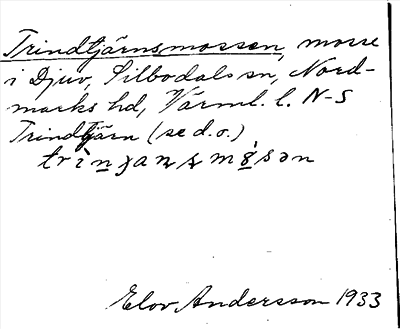 Trindtjärnsmossen, mosse
i Djuv, Silbodals sn, Nord-
marks hd, Värml. l. N-S
Trindtjärn (se d.o.)
Elov Andersson 1933